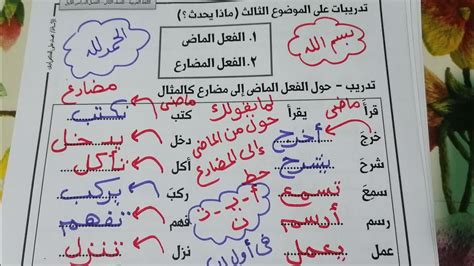 تدريبات على الموضوع الثالث ( ماذا يحدث ؟ )
بسم الله
١. الفعل الماض
٢. الفعل المضارع
الحمد لله
تدريب - حول الفعل الماض إلى مضارع كالمثال
ماضى مضارع
قرأ يقرأ كتب يكتب
ماضى مضارع
خرج أخرج دخل يدخل
شرح يشرح أكل نأكل
سمع تسمع ركب يركب
رسم أرسم فهم تفهم
عمل يعمل نزل تنزل
لما يقولك
حول من الماضى
إلى المضارع
حط
أ - ي - ت
ن
فى أول